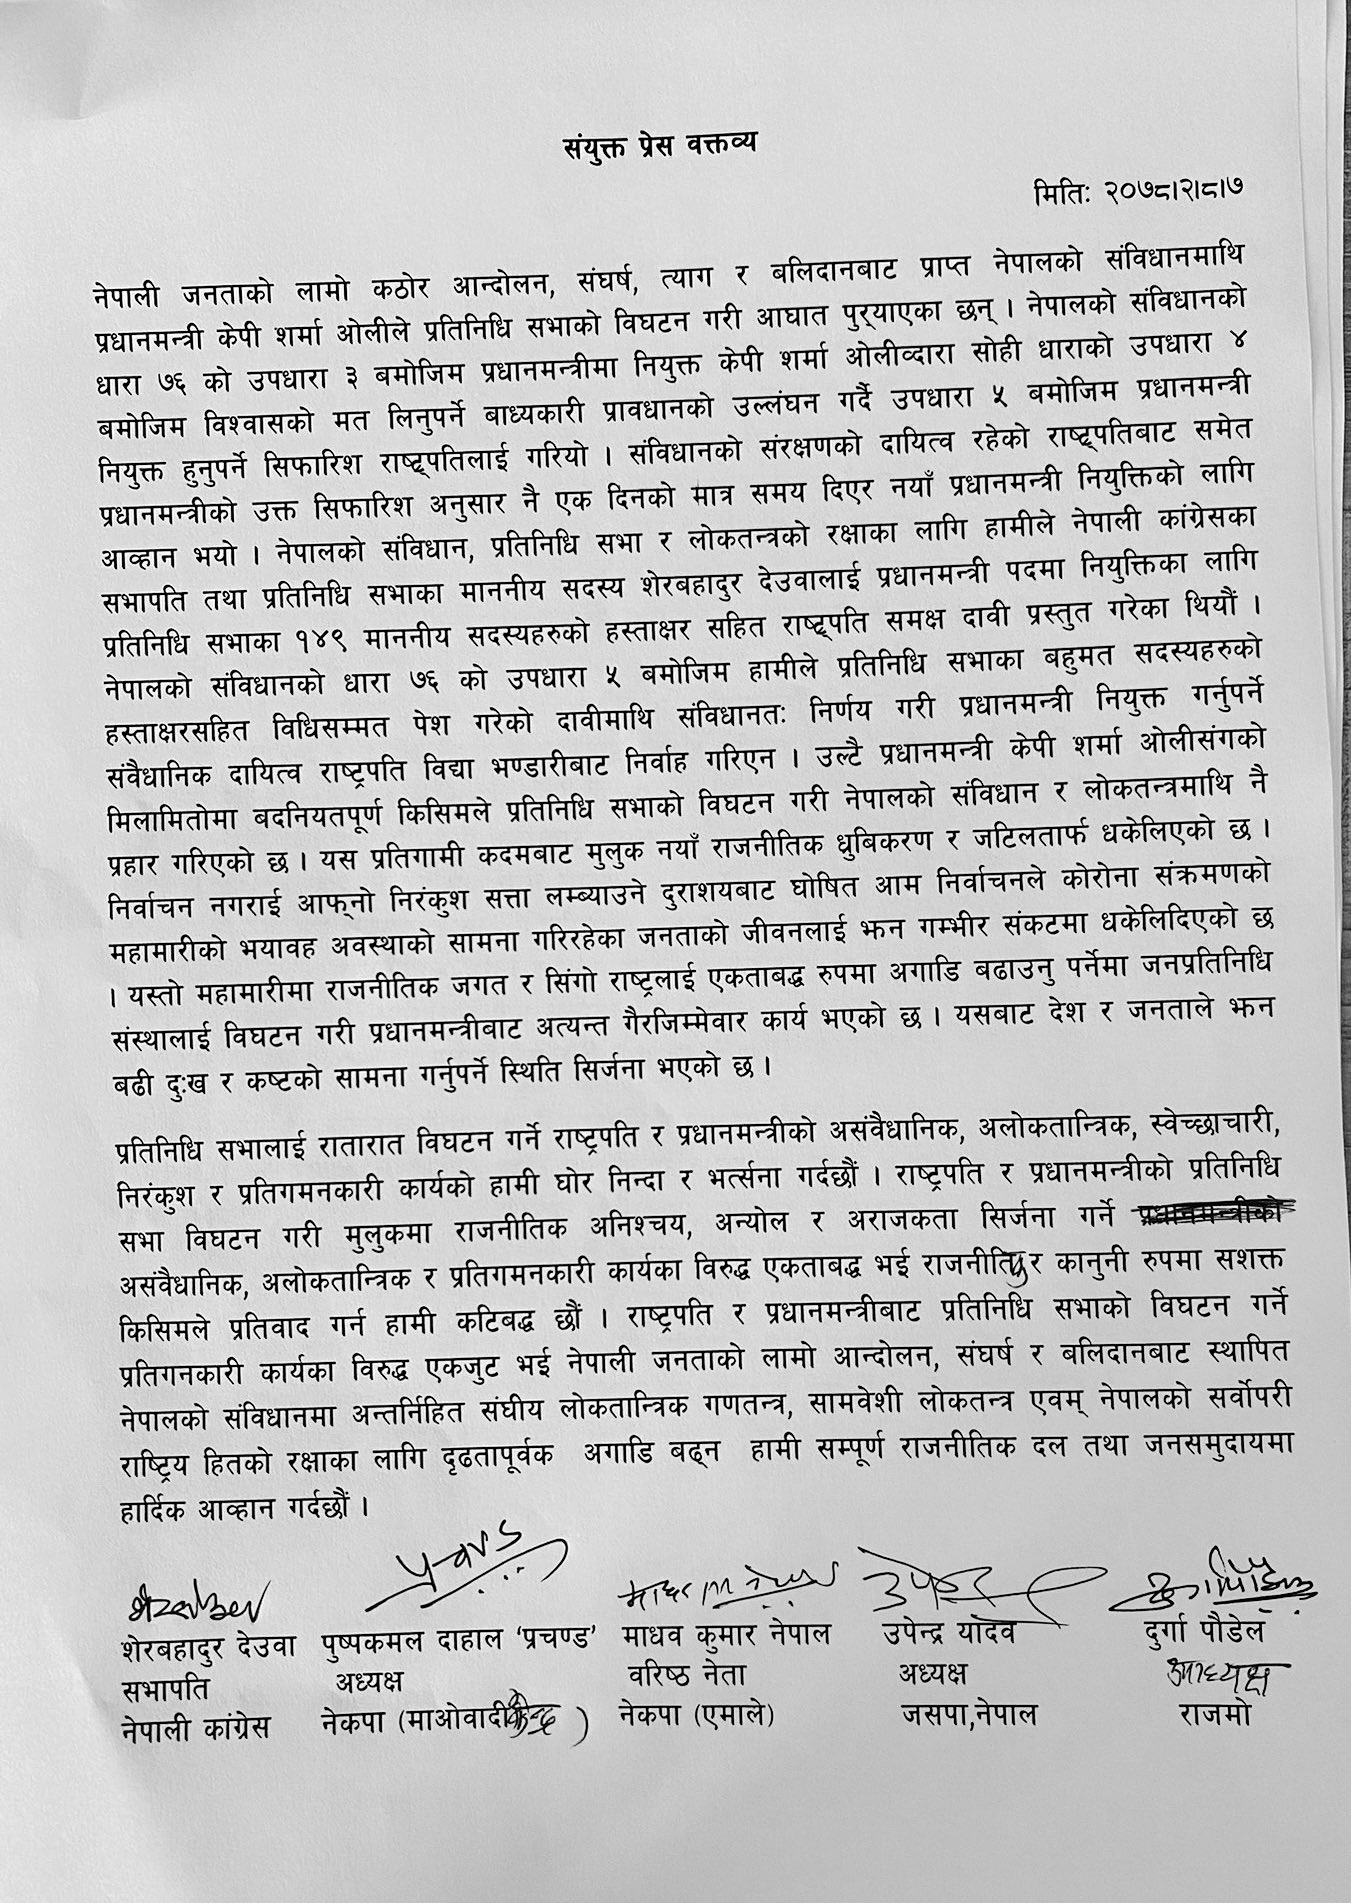 संयुक्त प्रेस वक्तव्य
मितिः २०७८।२।८।७
नेपाली जनताको लामो कठोर आन्दोलन, संघर्ष, त्याग र बलिदानबाट प्राप्त नेपालको संविधानमाथि
प्रधानमन्त्री केपी शर्मा ओलीले प्रतिनिधि सभाको विघटन गरी आघात पुर्‍याएका छन् । नेपालको संविधानको
धारा ७६ को उपधारा ३ बमोजिम प्रधानमन्त्रीमा नियुक्त केपी शर्मा ओलीव्दारा सोही धाराको उपधारा ४
बमोजिम विश्वासको मत लिनुपर्ने बाध्यकारी प्रावधानको उल्लंघन गर्दै उपधारा ५ बमोजिम प्रधानमन्त्री
नियुक्त हुनुपर्ने सिफारिश राष्ट्रपतिलाई गरियो । संविधानको संरक्षणको दायित्व रहेको राष्ट्रपतिबाट समेत
प्रधानमन्त्रीको उक्त सिफारिश अनुसार नै एक दिनको मात्र समय दिएर नयाँ प्रधानमन्त्री नियुक्तिको लागि
आव्हान भयो । नेपालको संविधान, प्रतिनिधि सभा र लोकतन्त्रको रक्षाका लागि हामीले नेपाली कांग्रेसका
सभापति तथा प्रतिनिधि सभाका माननीय सदस्य शेरबहादुर देउवालाई प्रधानमन्त्री पदमा नियुक्तिका लागि
प्रतिनिधि सभाका १४९ माननीय सदस्यहरुको हस्ताक्षर सहित राष्ट्रपति समक्ष दावी प्रस्तुत गरेका थियौं ।
नेपालको संविधानको धारा ७६ को उपधारा ५ बमोजिम हामीले प्रतिनिधि सभाका बहुमत सदस्यहरुको
हस्ताक्षरसहित विधिसम्मत पेश गरेको दावीमाथि संविधानतः निर्णय गरी प्रधानमन्त्री नियुक्त गर्नुपर्ने
संवैधानिक दायित्व राष्ट्रपति विद्या भण्डारीबाट निर्वाह गरिएन । उल्टै प्रधानमन्त्री केपी शर्मा ओलीसंगको
मिलामितोमा बदनियतपूर्ण किसिमले प्रतिनिधि सभाको विघटन गरी नेपालको संविधान र लोकतन्त्रमाथि नै
प्रहार गरिएको छ । यस प्रतिगामी कदमबाट मुलुक नयाँ राजनीतिक ध्रुबिकरण र जटिलतार्फ धकेलिएको छ ।
निर्वाचन नगराई आफ्नो निरंकुश सत्ता लम्ब्याउने दुराशयबाट घोषित आम निर्वाचनले कोरोना संक्रमणको
महामारीको भयावह अवस्थाको सामना गरिरहेका जनताको जीवनलाई झन गम्भीर संकटमा धकेलिदिएको छ
। यस्तो महामारीमा राजनीतिक जगत र सिंगो राष्ट्रलाई एकताबद्ध रुपमा अगाडि बढाउनु पर्नेमा जनप्रतिनिधि
संस्थालाई विघटन गरी प्रधानमन्त्रीबाट अत्यन्त गैरजिम्मेवार कार्य भएको छ । यसबाट देश र जनताले झन
बढी दुःख र कष्टको सामना गर्नुपर्ने स्थिति सिर्जना भएको छ ।
प्रतिनिधि सभालाई रातारात विघटन गर्ने राष्ट्रपति र प्रधानमन्त्रीको असंवैधानिक, अलोकतान्त्रिक, स्वेच्छाचारी,
निरंकुश र प्रतिगमनकारी कार्यको हामी घोर निन्दा र भर्त्सना गर्दछौं । राष्ट्रपति र प्रधानमन्त्रीको प्रतिनिधि
सभा विघटन गरी मुलुकमा राजनीतिक अनिश्चय, अन्योल र अराजकता सिर्जना गर्ने प्रधानमन्त्रीको
असंवैधानिक, अलोकतान्त्रिक र प्रतिगमनकारी कार्यका विरुद्ध एकताबद्ध भई राजनीतिक र कानुनी रुपमा सशक्त
किसिमले प्रतिवाद गर्न हामी कटिबद्ध छौं । राष्ट्रपति र प्रधानमन्त्रीबाट प्रतिनिधि सभाको विघटन गर्ने
प्रतिगनकारी कार्यका विरुद्ध एकजुट भई नेपाली जनताको लामो आन्दोलन, संघर्ष र बलिदानबाट स्थापित
नेपालको संविधानमा अन्तर्निहित संघीय लोकतान्त्रिक गणतन्त्र, सामवेशी लोकतन्त्र एवम् नेपालको सर्वोपरी
राष्ट्रिय हितको रक्षाका लागि दृढतापूर्वक अगाडि बढ्न हामी सम्पूर्ण राजनीतिक दल तथा जनसमुदायमा
हार्दिक आव्हान गर्दछौं ।
शेरबहादुर देउवा पुष्पकमल दाहाल ‘प्रचण्ड’ माधव कुमार नेपाल उपेन्द्र यादव दुर्गा पौडेल
सभापति अध्यक्ष वरिष्ठ नेता अध्यक्ष अध्यक्ष
नेपाली कांग्रेस नेकपा (माओवादी केन्द्र) नेकपा (एमाले) जसपा,नेपाल राजमो